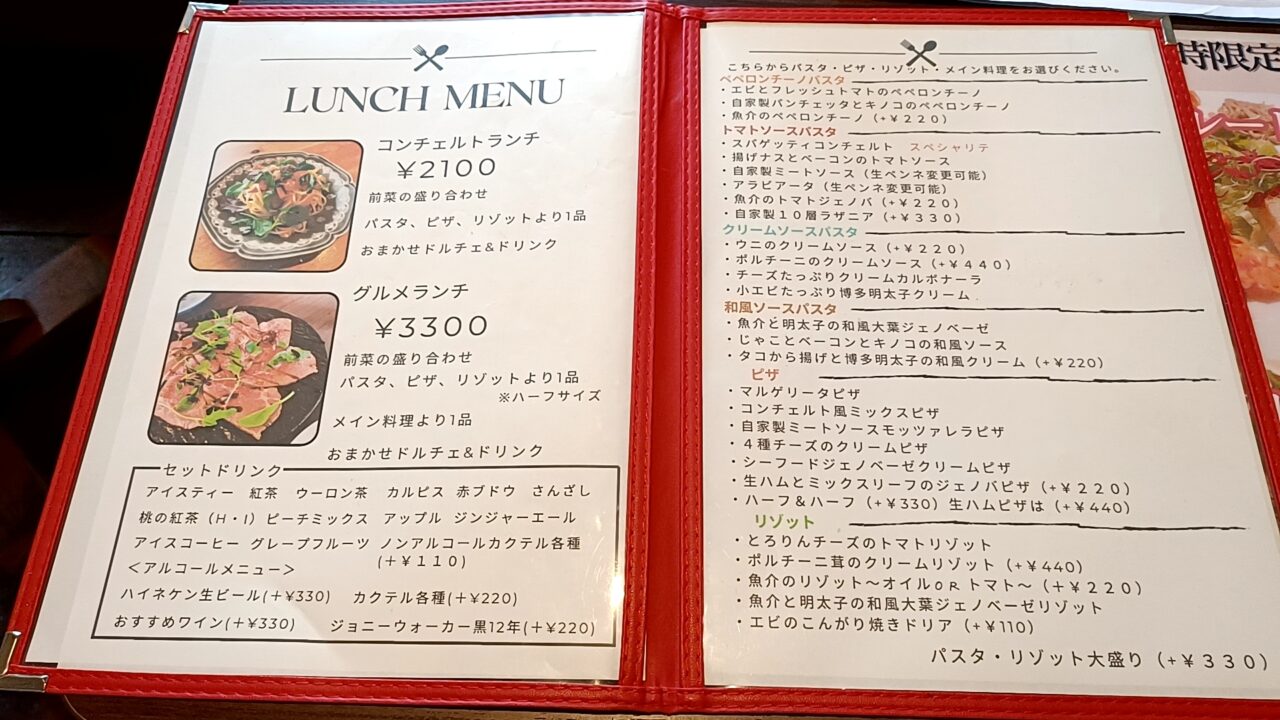 LUNCH MENU
コンチェルトランチ
￥2100
前菜の盛り合わせ
パスタ、ピザ、リゾットより1品
おまかせドルチェ&ドリンク
グルメランチ
￥3300
前菜の盛り合わせ
パスタ、ピザ、リゾットより1品
※ハーフサイズ
メイン料理より1品
おまかせドルチェ&ドリンク
セットドリンク
アイスティー 紅茶 ウーロン茶 カルピス 赤ブドウ さんざし
桃の紅茶（H・I）ピーチミックス アップル ジンジャーエール
アイスコーヒー グレープフルーツ ノンアルコールカクテル各種
(＋￥１１０)
＜アルコールメニュー＞
ハイネケン生ビール(＋¥330) カクテル各種(＋¥220)
おすすめワイン(＋¥330) ジョニーウォーカー黒12年(＋¥220)
こちらからパスタ・ピザ・リゾット・メイン料理をお選びください。
ペペロンチーノパスタ
・エビとフレッシュトマトのペペロンチーノ
・自家製パンチェッタとキノコのペペロンチーノ
・魚介のペペロンチーノ（+￥２２０）
トマトソースパスタ
・スパゲッティコンチェルト スペシャリテ
・揚げナスとベーコンのトマトソース
・自家製ミートソース（生ペンネ変更可能）
・アラビアータ（生ペンネ変更可能）
・魚介のトマトジェノバ（+￥２２０）
・自家製１０層ラザニア（+￥３３０）
クリームソースパスタ
・ウニのクリームソース（+￥２２０）
・ポルチーニのクリームソース（+￥４４０）
・チーズたっぷりクリームカルボナーラ
・小エビたっぷり博多明太子クリーム
和風ソースパスタ
・魚介と明太子の和風大葉ジェノベーゼ
・じゃことベーコンとキノコの和風ソース
・タコから揚げと博多明太子の和風クリーム（+￥220）
ピザ
・マルゲリータピザ
・コンチェルト風ミックスピザ
・自家製ミートソースモッツァレラピザ
・４種チーズのクリームピザ
・シーフードジェノベーゼクリームピザ
・生ハムとミックスリーフのジェノバピザ（+￥２２０）
・ハーフ＆ハーフ（+￥330）生ハムピザは（+￥440）
リゾット
・とろりんチーズのトマトリゾット
・ポルチーニ茸のクリームリゾット（+￥440）
・魚介のリゾット〜オイルORトマト〜（+￥２２０）
・魚介と明太子の和風大葉ジェノベーゼリゾット
・エビのこんがり焼きドリア（+￥110）
パスタ・リゾット大盛り（+￥３３０）
時限定